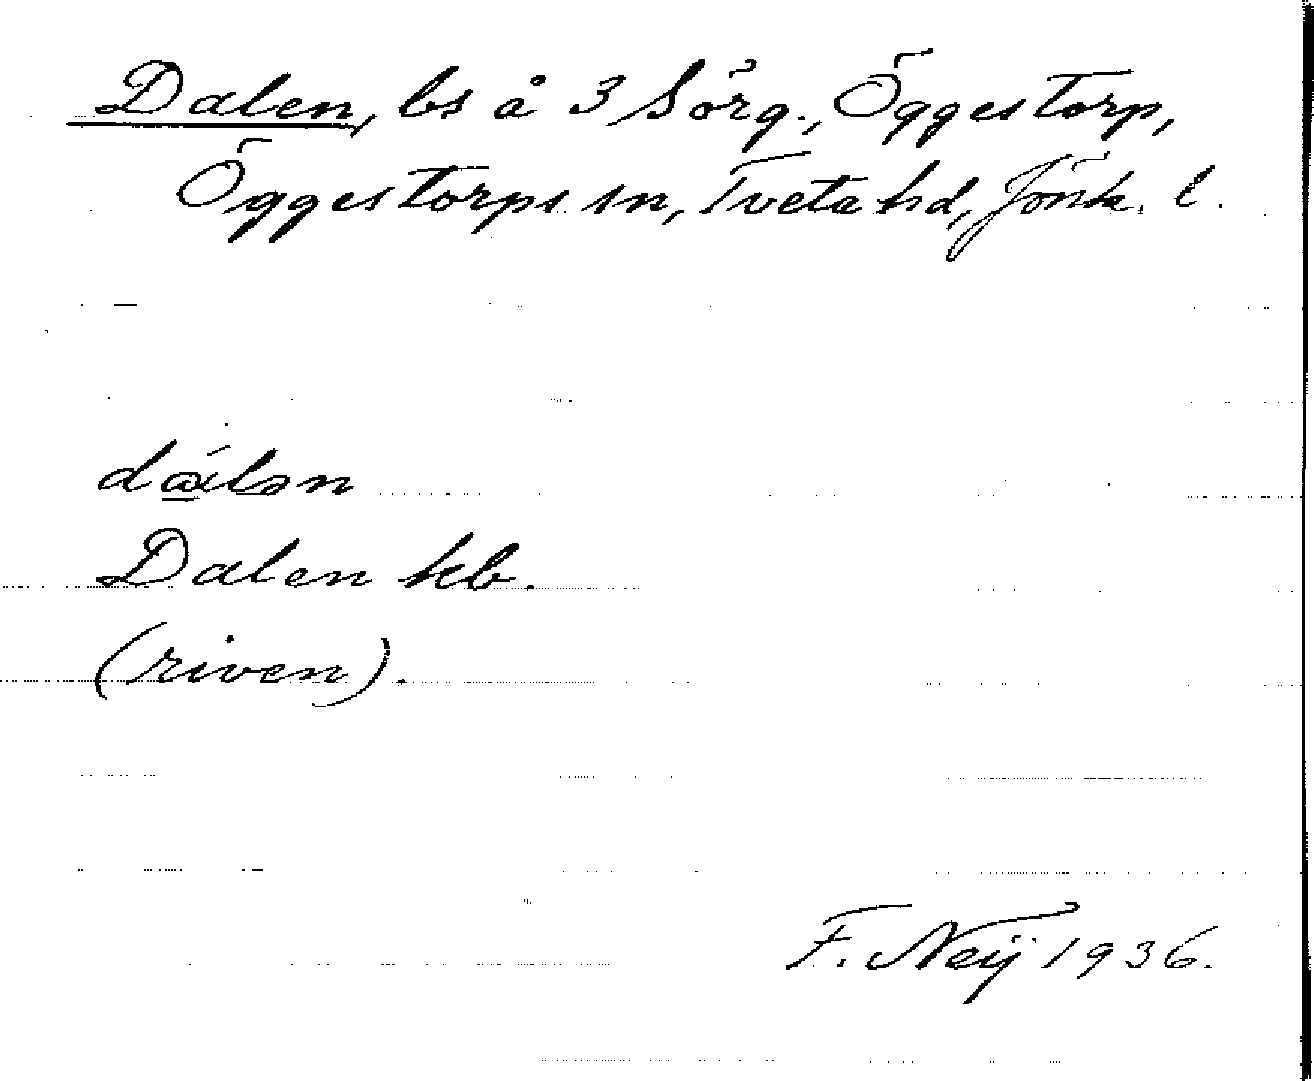 Dalen, bs å 3 Sörg., Öggestorp,
Öggestorps sn, Tveta hd, Jönk. l.
dálən
Dalen kb.
(riven).
F. Neij 1936.